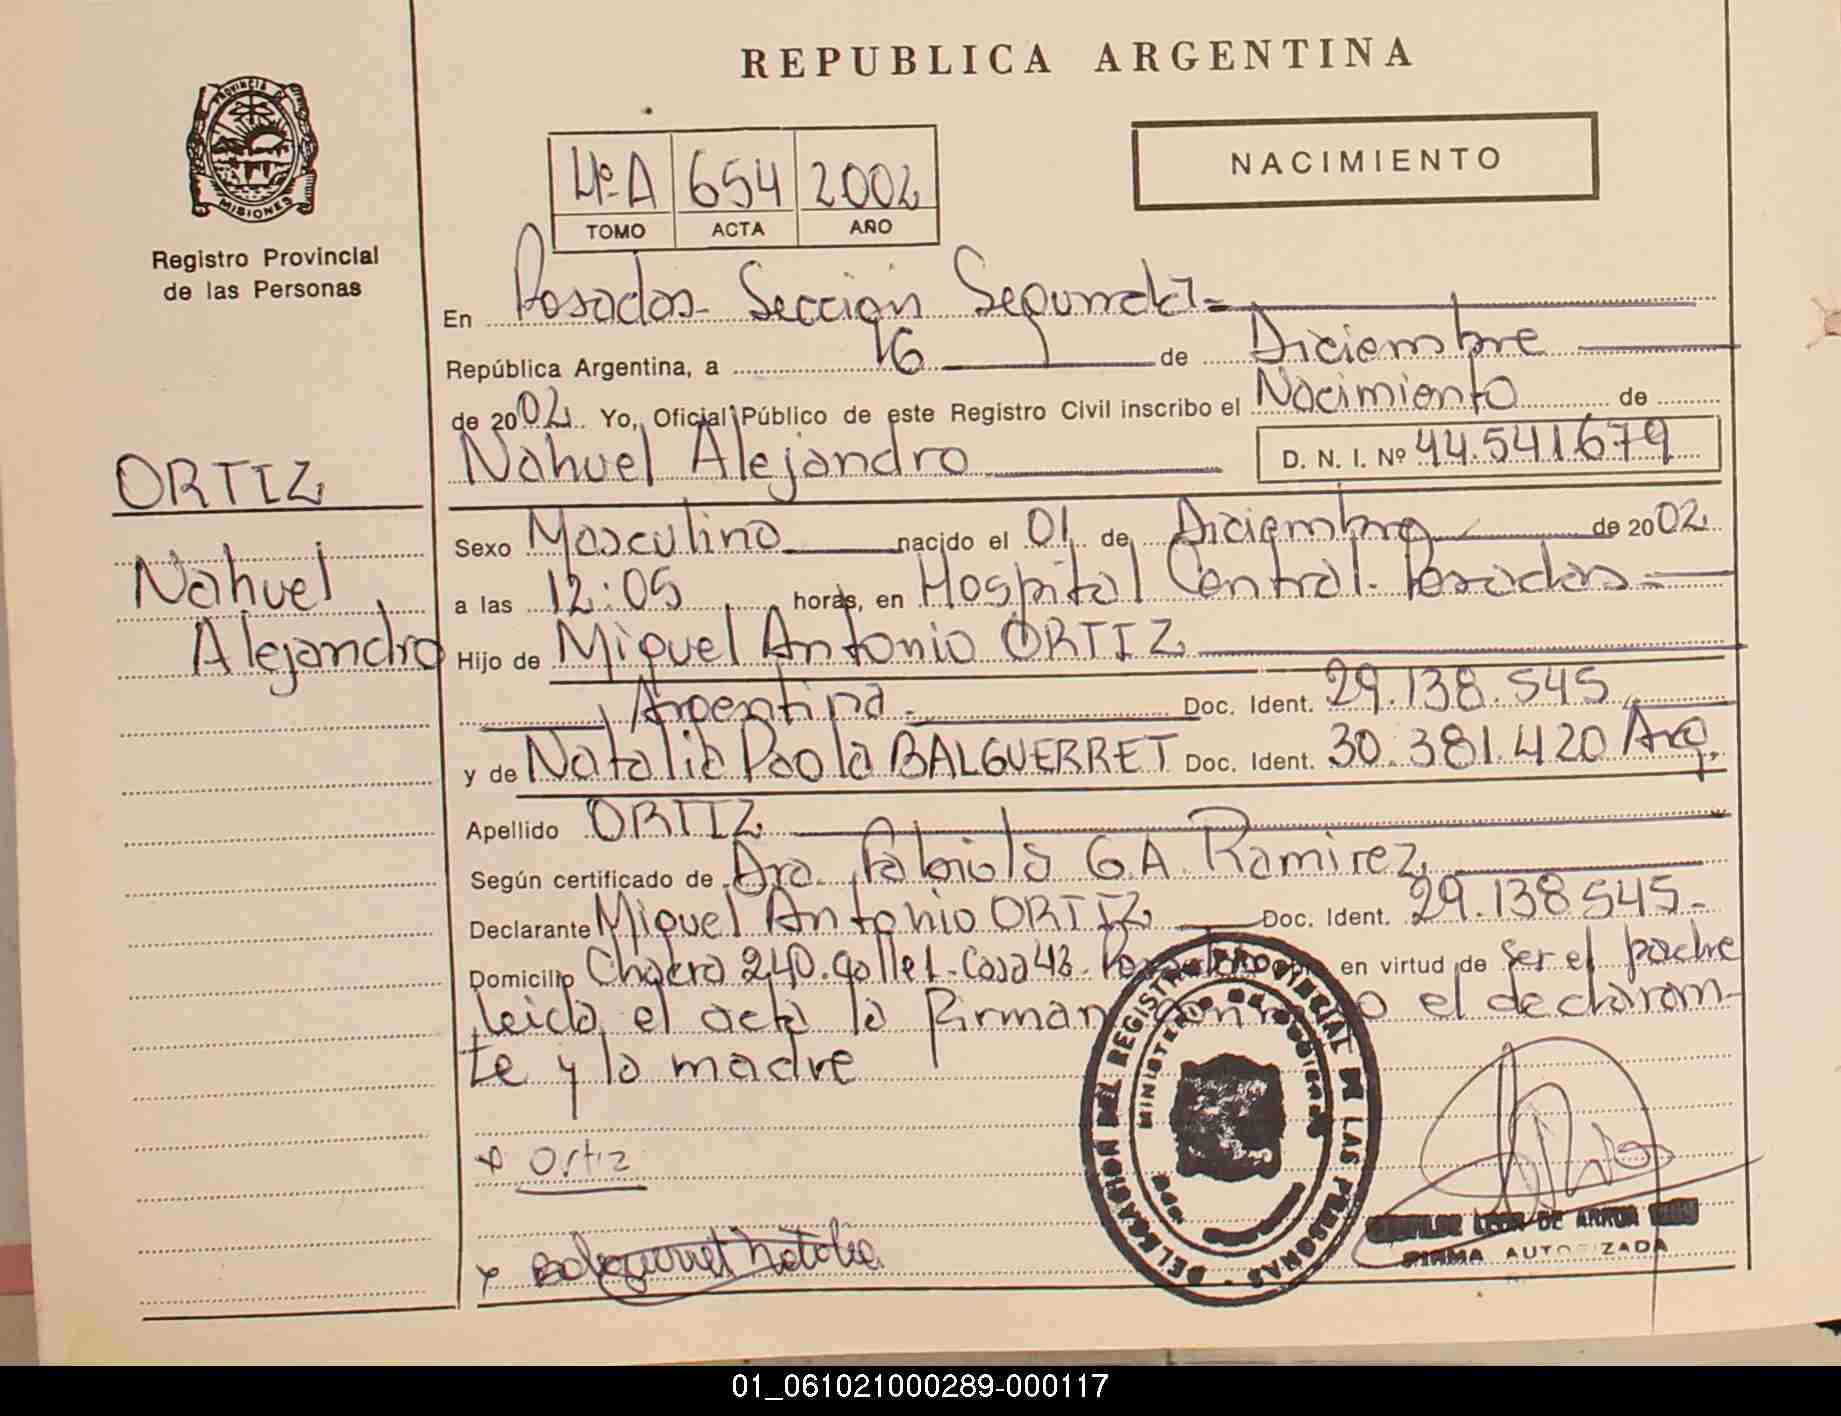 REPUBLICA ARGENTINA
NACIMIENTO
PROVINCIA DE
MISIONES
Registro Provincial
de las Personas
4º A 654 2002
TOMO ACTA AÑO
En Posadas - Sección Segunda -
República Argentina, a 16 de Diciembre
de 2002 Yo, Oficial Público de este Registro Civil inscribo el Nacimiento de
Nahuel Alejandro D. N. I. Nº 44.541.679
ORTIZ
Nahuel
Alejandro
Sexo Masculino nacido el 01 de Diciembre de 2002
a las 12:05 horas, en Hospital Central. Posadas -
Hijo de Miguel Antonio ORTIZ
Argentina. Doc. Ident. 29.138.545
y de Natalia Paola BALGUERRET Doc. Ident. 30.381.420 Arg.
Apellido ORTIZ
Según certificado de Dra. Fabiola G.A. Ramirez
Declarante Miguel Antonio ORTIZ Doc. Ident. 29.138.545-
Domicilio Chacra 240. Calle 1 - Casa 43. en virtud de ser el padre
leida el acta la firman el declaran-
te y la madre
Ortiz
Balguerret Natalia
DELEGACION DEL REGISTRO PROVINCIAL DE LAS PERSONAS
MINISTERIO DE GOBIERNO
LEON DE ARRUA
FIRMA AUTORIZADA
01_061021000289-000117